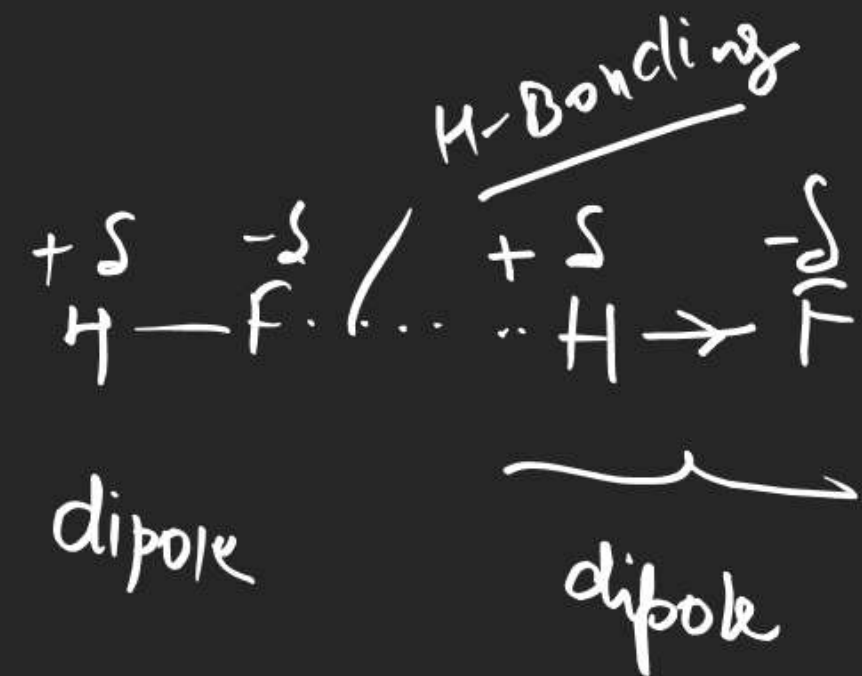 H-Bonding
+δ -δ +δ -δ
H — F ...... H → F
dipole dipole